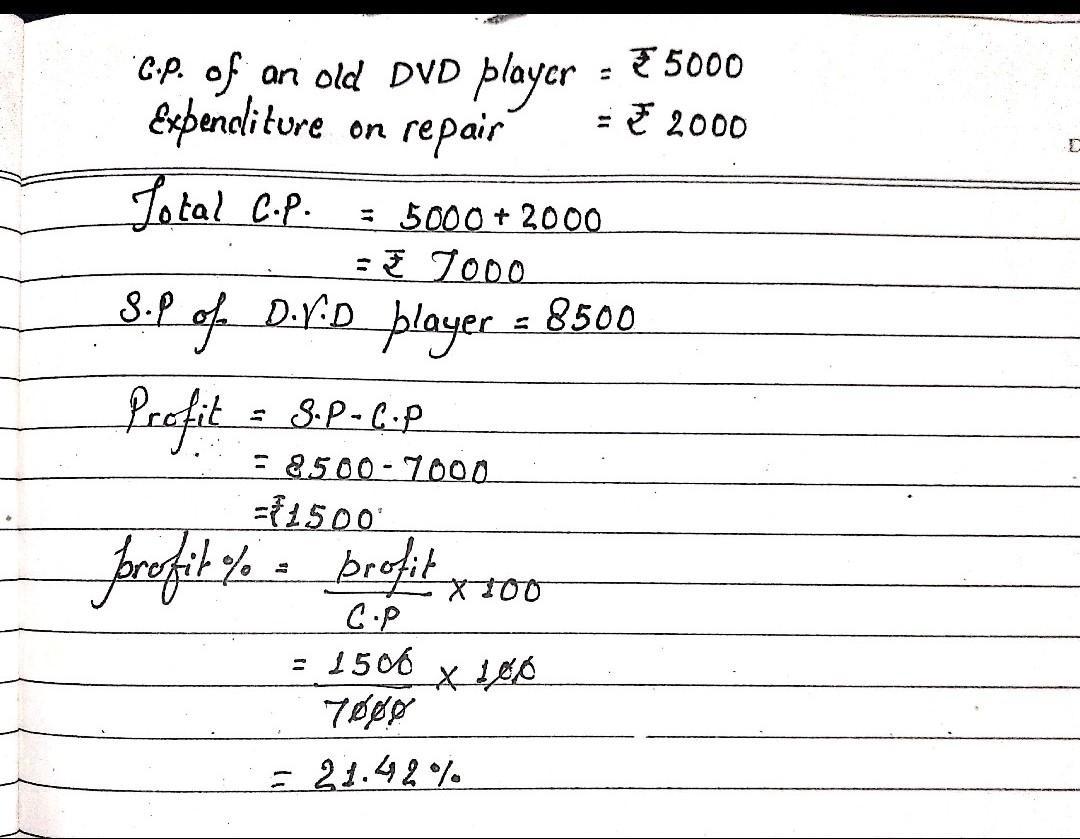 C.P. of an old DVD player = ₹ 5000
Expenditure on repair = ₹ 2000
Total C.P. = 5000 + 2000
= ₹ 7000
S.P of D.V.D player = 8500
Profit = S.P - C.P
= 8500 - 7000
= ₹1500
profit % = profit
C.P
× 100
= 1500
7000
× 100
= 21.42 %